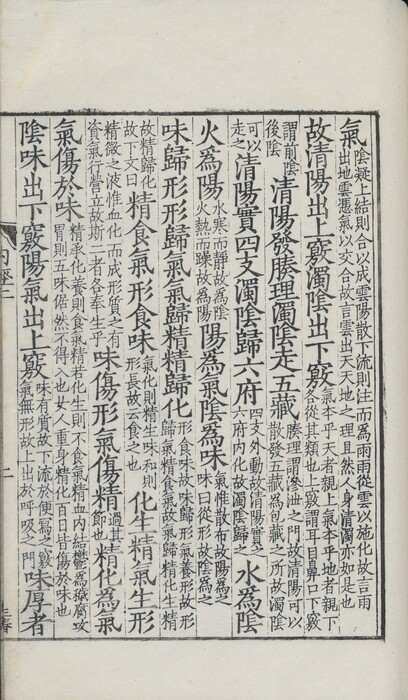 氣陰凝上結則合以成雲陽散下流則注而爲雨雨從雲以施化故言雨出地雲憑氣以交合故言雲出天天地之理且然人身清濁亦如是也
故清陽出上竅濁陰出下竅氣本乎天者親上氣本乎地者親下各從其類也上竅謂耳目鼻口下竅
謂前陰後陰清陽發腠理濁陰走五藏腠理謂滲泄之門故清陽可以散發五藏爲包藏之所故濁陰
可以走之清陽實四支濁陰歸六府四支外動故清陽實之六府内化故濁陰歸之水爲陰
火爲陽水寒而靜故爲陰火熱而躁故爲陽陽爲氣陰爲味氣惟散布故陽爲之味曰從形故陰爲之
味歸形形歸氣氣歸精精歸化形食味故味歸形氣養形故形歸氣精食氣故氣歸精化生精
故精歸化故下文曰精食氣形食味氣化則精生味和則形長故云食之也化生精氣生形
精微之液惟血化而成形質之有資氣行營立故斯二者各奉生乎味傷形氣傷精過其節也精化爲氣
氣傷於味精承化養則食氣精若化生則不食氣精血内結鬱爲穢腐攻胃則五味倨然不得入也女人重身精化百日皆傷於味也
陰味出下竅陽氣出上竅味有質故下流於便寫之竅氣無形故上出於呼吸之門味厚者
内經二
二